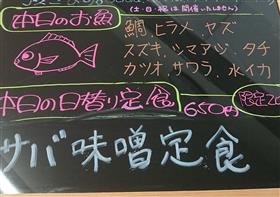 (土・日・祝は開催いたしません)
本日のお魚
鯛、ヒラメ、ヤズ
スズキ、シマアジ、タチ
カツオ、サワラ、水イカ
本日の日替り定食 650円 限定20
サバ味噌定食